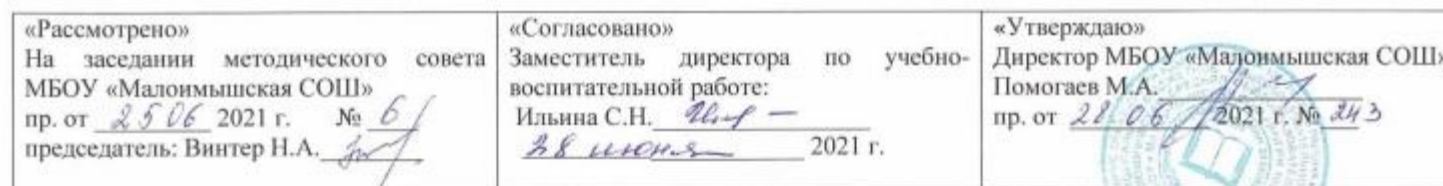 «Рассмотрено»
На заседании методического совета
МБОУ «Малоимышская СОШ»
пр. от 25 06 2021 г. № 6
председатель: Винтер Н.А.
«Согласовано»
Заместитель директора по учебно-
воспитательной работе:
Ильина С.Н.
28 июня 2021 г.
«Утверждаю»
Директор МБОУ «Малоимышская СОШ»
Помогаев М.А.
пр. от 28 06 2021 г. № 243